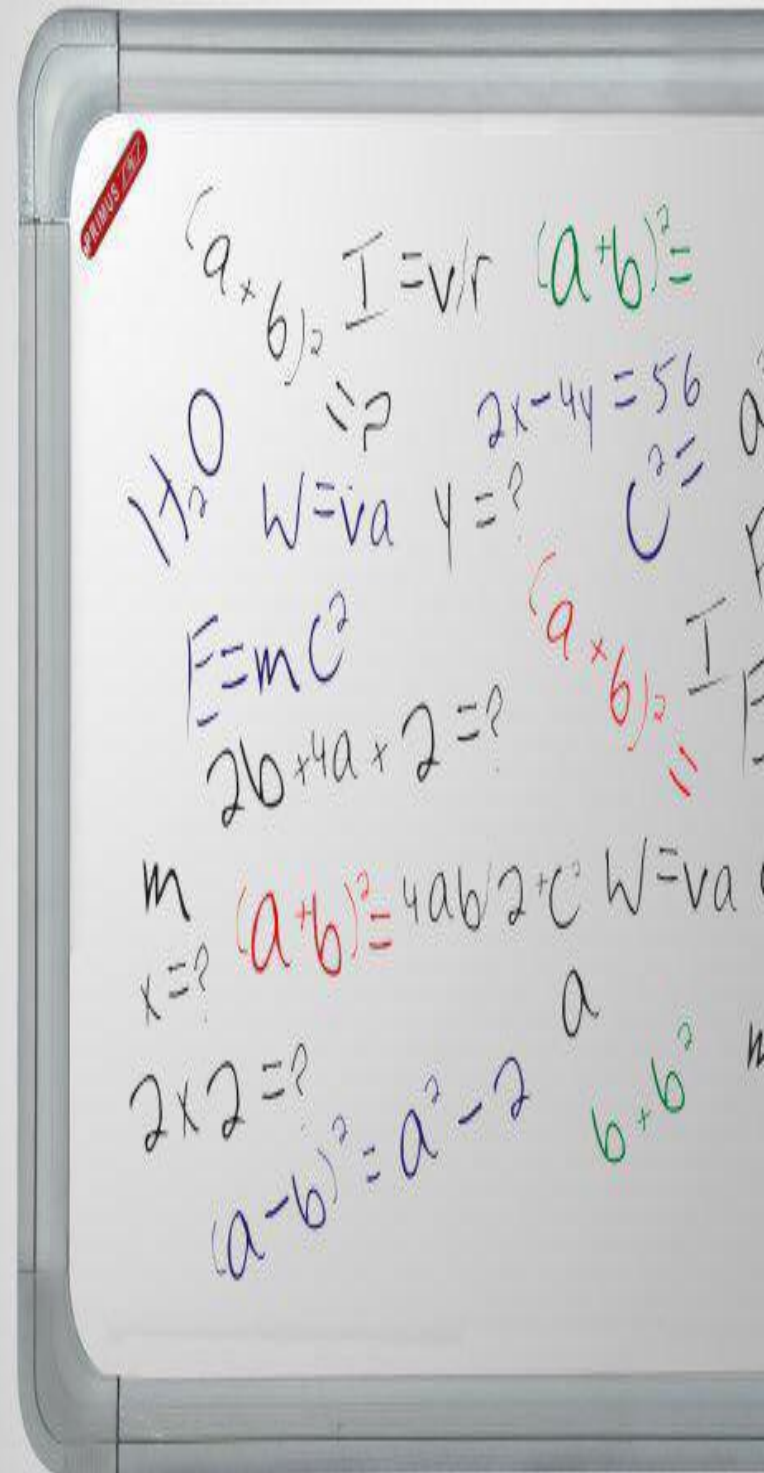 PRIMUS
(a+b)²
I=v/r
(a+b)²=
=?
2x-4y=56
a²
H₂O
W=va
y=?
C²=
E=mC²
(a+b)²
=
I
E
2b+4a+2=?
m
(a+b)²=
4ab/2+C²
W=va
x=?
a
2x2=?
b+b²
(a-b)²=a²-2